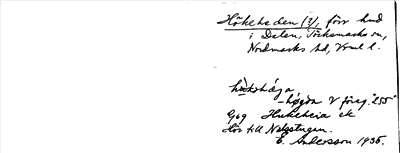 Hökeheden (?), förr hmd
i Dalen, Töcksmarks sn,
Nordmarks hd, Vrml l.
-högda V föreg. "255"
Gpg Hukeheia ek
Hör till Nolgstugen.
E. Andersson 1935.